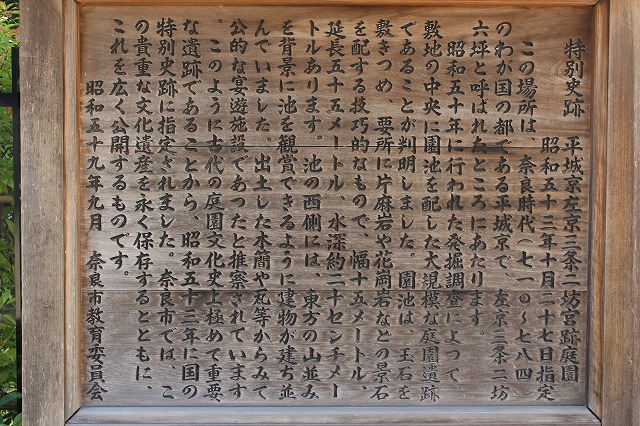 特別史跡　平城京左京三条二坊宮跡庭園
昭和五十三年十月二十七日指定
この場所は、奈良時代（七一〇～七八四）
のわが国の都である平城京で、左京三条二坊
六坪と呼ばれたところにあたります。
昭和五十年に行われた発掘調査によって
敷地の中央に園池を配した大規模な庭園遺跡
であることが判明しました。園池は、玉石を
敷きつめ、要所に片麻岩や花崗岩などの景石
を配する技巧的なもので、幅十五メートル、
延長五十五メートル、水深約二十センチメー
トルあります。池の西側には、東方の山並み
を背景に池を観賞できるように建物が建ち並
んでいました。出土した木簡や瓦等からみて
公的な宴遊施設であったと推察されています
。このように古代の庭園文化史上極めて重要
な遺跡であることから、昭和五十三年に国の
特別史跡に指定されました。奈良市では、こ
の貴重な文化遺産を永く保存するとともに、
これを広く公開するものです。
昭和五十九年九月　奈良市教育委員会